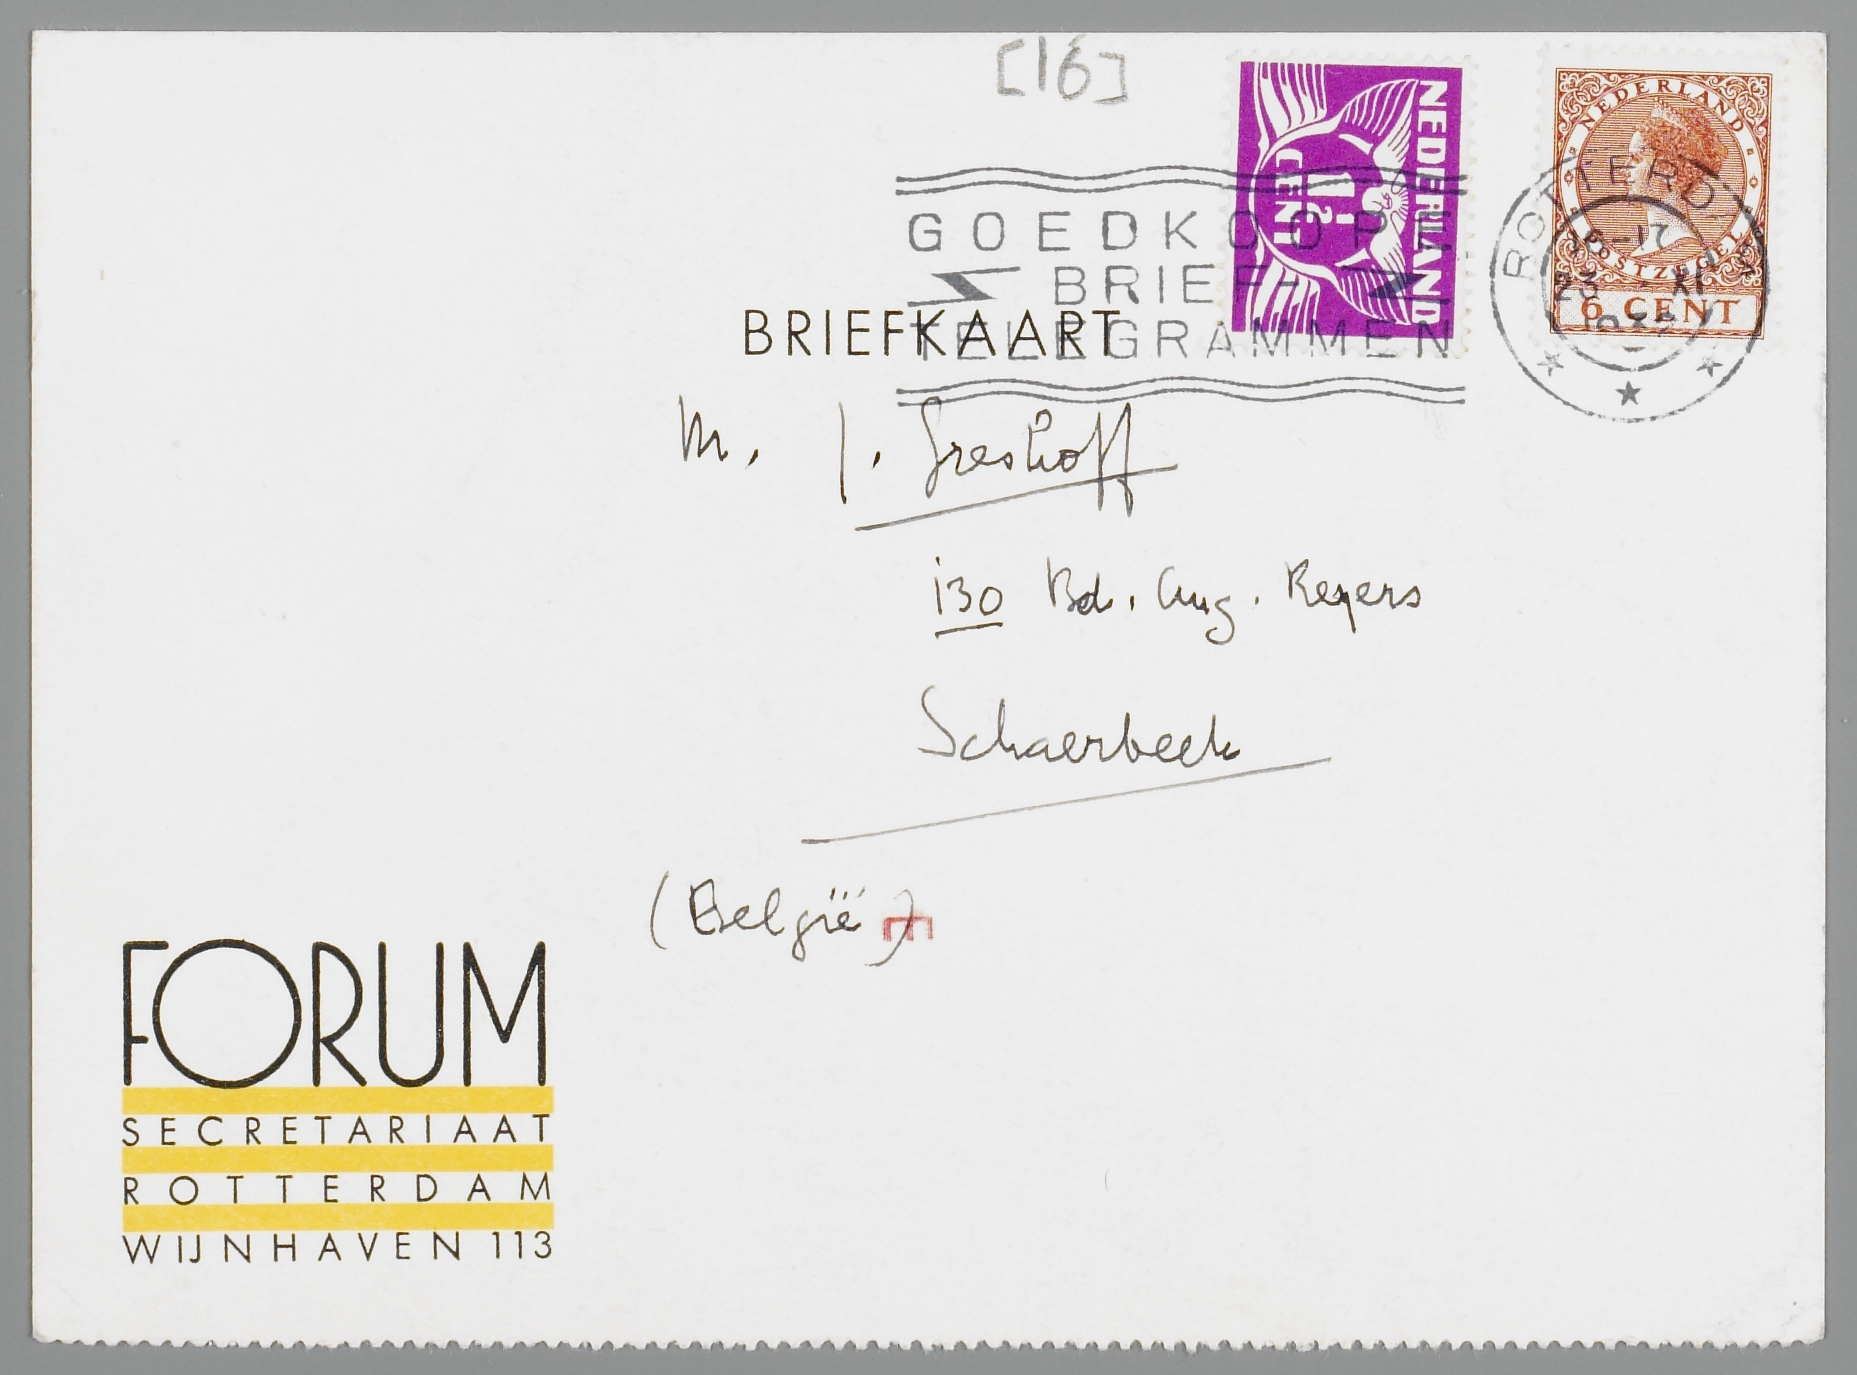 [16]
NEDERLAND
1½
CENT
NEDERLAND
POSTZEGEL
6 CENT
ROTTERDAM
23 XI
GOEDKOOPE
BRIEF-
TELEGRAMMEN
BRIEFKAART
M. J. Greshoff
130 Bd. Aug. Reyers
Schaerbeek
(België)
E
FORUM
SECRETARIAAT
ROTTERDAM
WIJNHAVEN 113